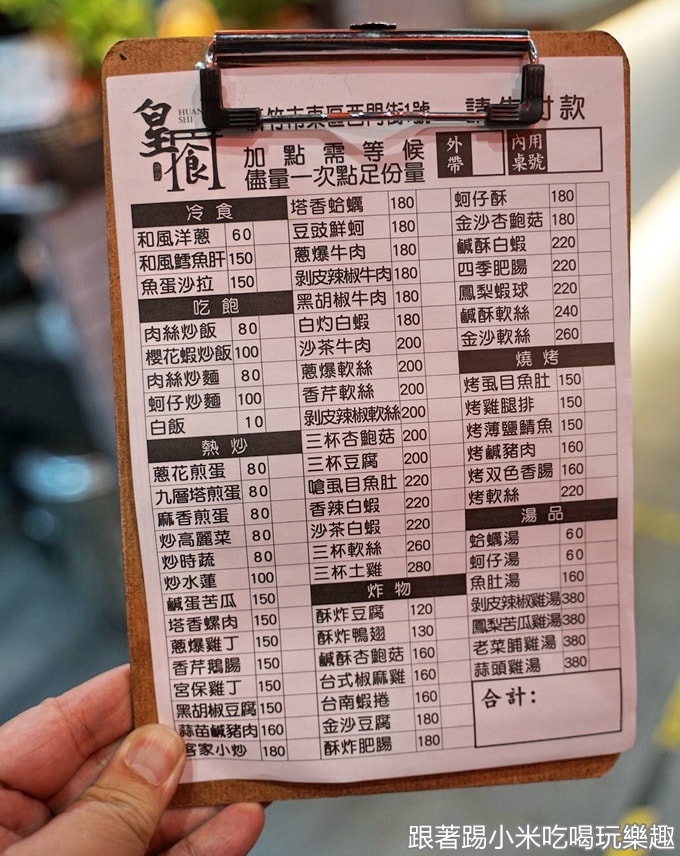 皇食
HUANG
SHI
新竹市東區西門街1號
請先付款
加點需等候
儘量一次點足份量
外帶
內用桌號
冷食
和風洋蔥 60
和風鱈魚肝 150
魚蛋沙拉 150
吃飽
肉絲炒飯 80
櫻花蝦炒飯 100
肉絲炒麵 80
蚵仔炒麵 100
白飯 10
熱炒
蔥花煎蛋 80
九層塔煎蛋 80
麻香煎蛋 80
炒高麗菜 80
炒時蔬 80
炒水蓮 100
鹹蛋苦瓜 150
塔香螺肉 150
蔥爆雞丁 150
香芹鵝腸 150
宮保雞丁 150
黑胡椒豆腐 150
蒜苗鹹豬肉 160
客家小炒 180
塔香蛤蠣 180
豆豉鮮蚵 180
蔥爆牛肉 180
剝皮辣椒牛肉 180
黑胡椒牛肉 180
白灼白蝦 180
沙茶牛肉 200
蔥爆軟絲 200
香芹軟絲 200
剝皮辣椒軟絲 200
三杯杏鮑菇 200
三杯豆腐 200
嗆虱目魚肚 220
香辣白蝦 220
沙茶白蝦 220
三杯軟絲 260
三杯土雞 280
炸物
酥炸豆腐 120
酥炸鴨翅 130
鹹酥杏鮑菇 160
台式椒麻雞 160
台南蝦捲 160
金沙豆腐 180
酥炸肥腸 180
蚵仔酥 180
金沙杏鮑菇 180
鹹酥白蝦 220
四季肥腸 220
鳳梨蝦球 220
鹹酥軟絲 240
金沙軟絲 260
燒烤
烤虱目魚肚 150
烤雞腿排 150
烤薄鹽鯖魚 150
烤鹹豬肉 160
烤双色香腸 160
烤軟絲 220
湯品
蛤蠣湯 60
蚵仔湯 60
魚肚湯 160
剝皮辣椒雞湯 380
鳳梨苦瓜雞湯 380
老菜脯雞湯 380
蒜頭雞湯 380
合計:
跟著踢小米吃喝玩樂趣